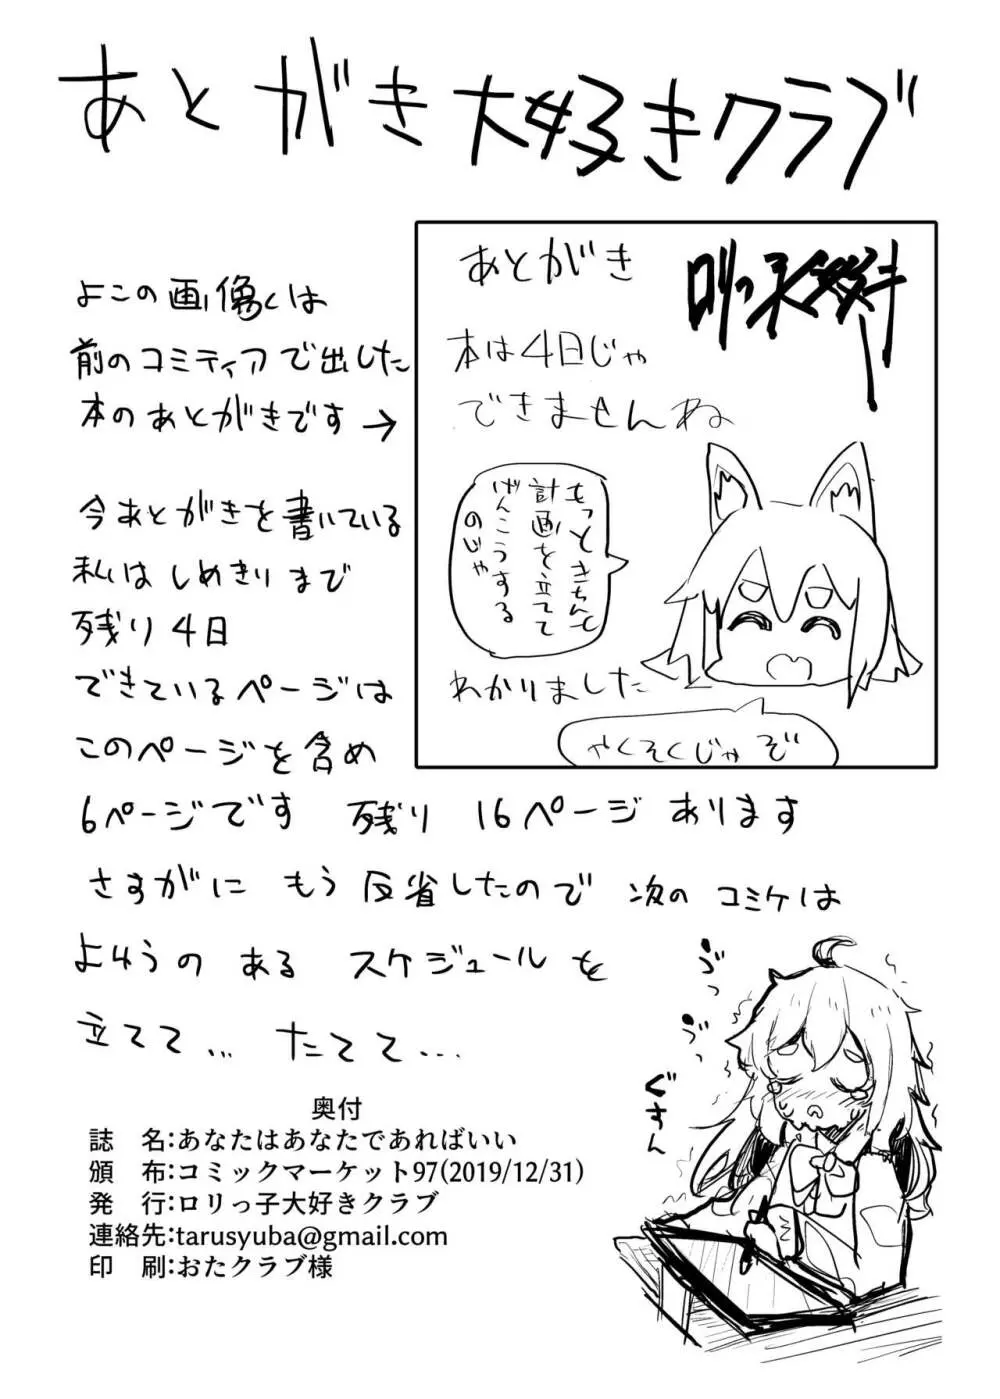 あとがき大好きクラブ
よこの画像くは
前のコミティアで出した
本のあとがきです→
今あとがきを書いている
私はしめきりまで
残り4日
できているページは
このページを含め
6ページです 残り 16ページ あります
さすがに もう 反省したので 次の コミケは
よゆうの ある スケジュールを
立てて… たてて…
あとがき
本は4日じゃ
できませんね
もっときちんと
計画を立てて
げんこうする
のじゃ
わかりました
やくそくじゃぞ
ゔっ
ゔっ
ぐすん
奥付
誌 名:あなたはあなたであればいい
頒 布:コミックマーケット97(2019/12/31)
発 行:ロリっ子大好きクラブ
連絡先:tarusyuba@gmail.com
印 刷:おたクラブ様